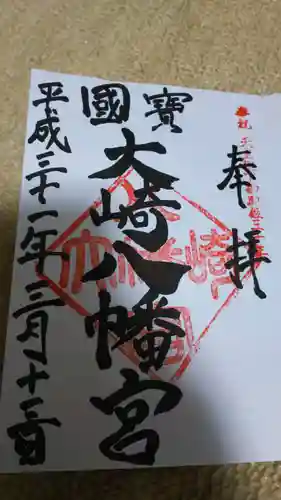 奉祝
奉拝
國寶
大崎八幡宮
平成三十一年三月十三日